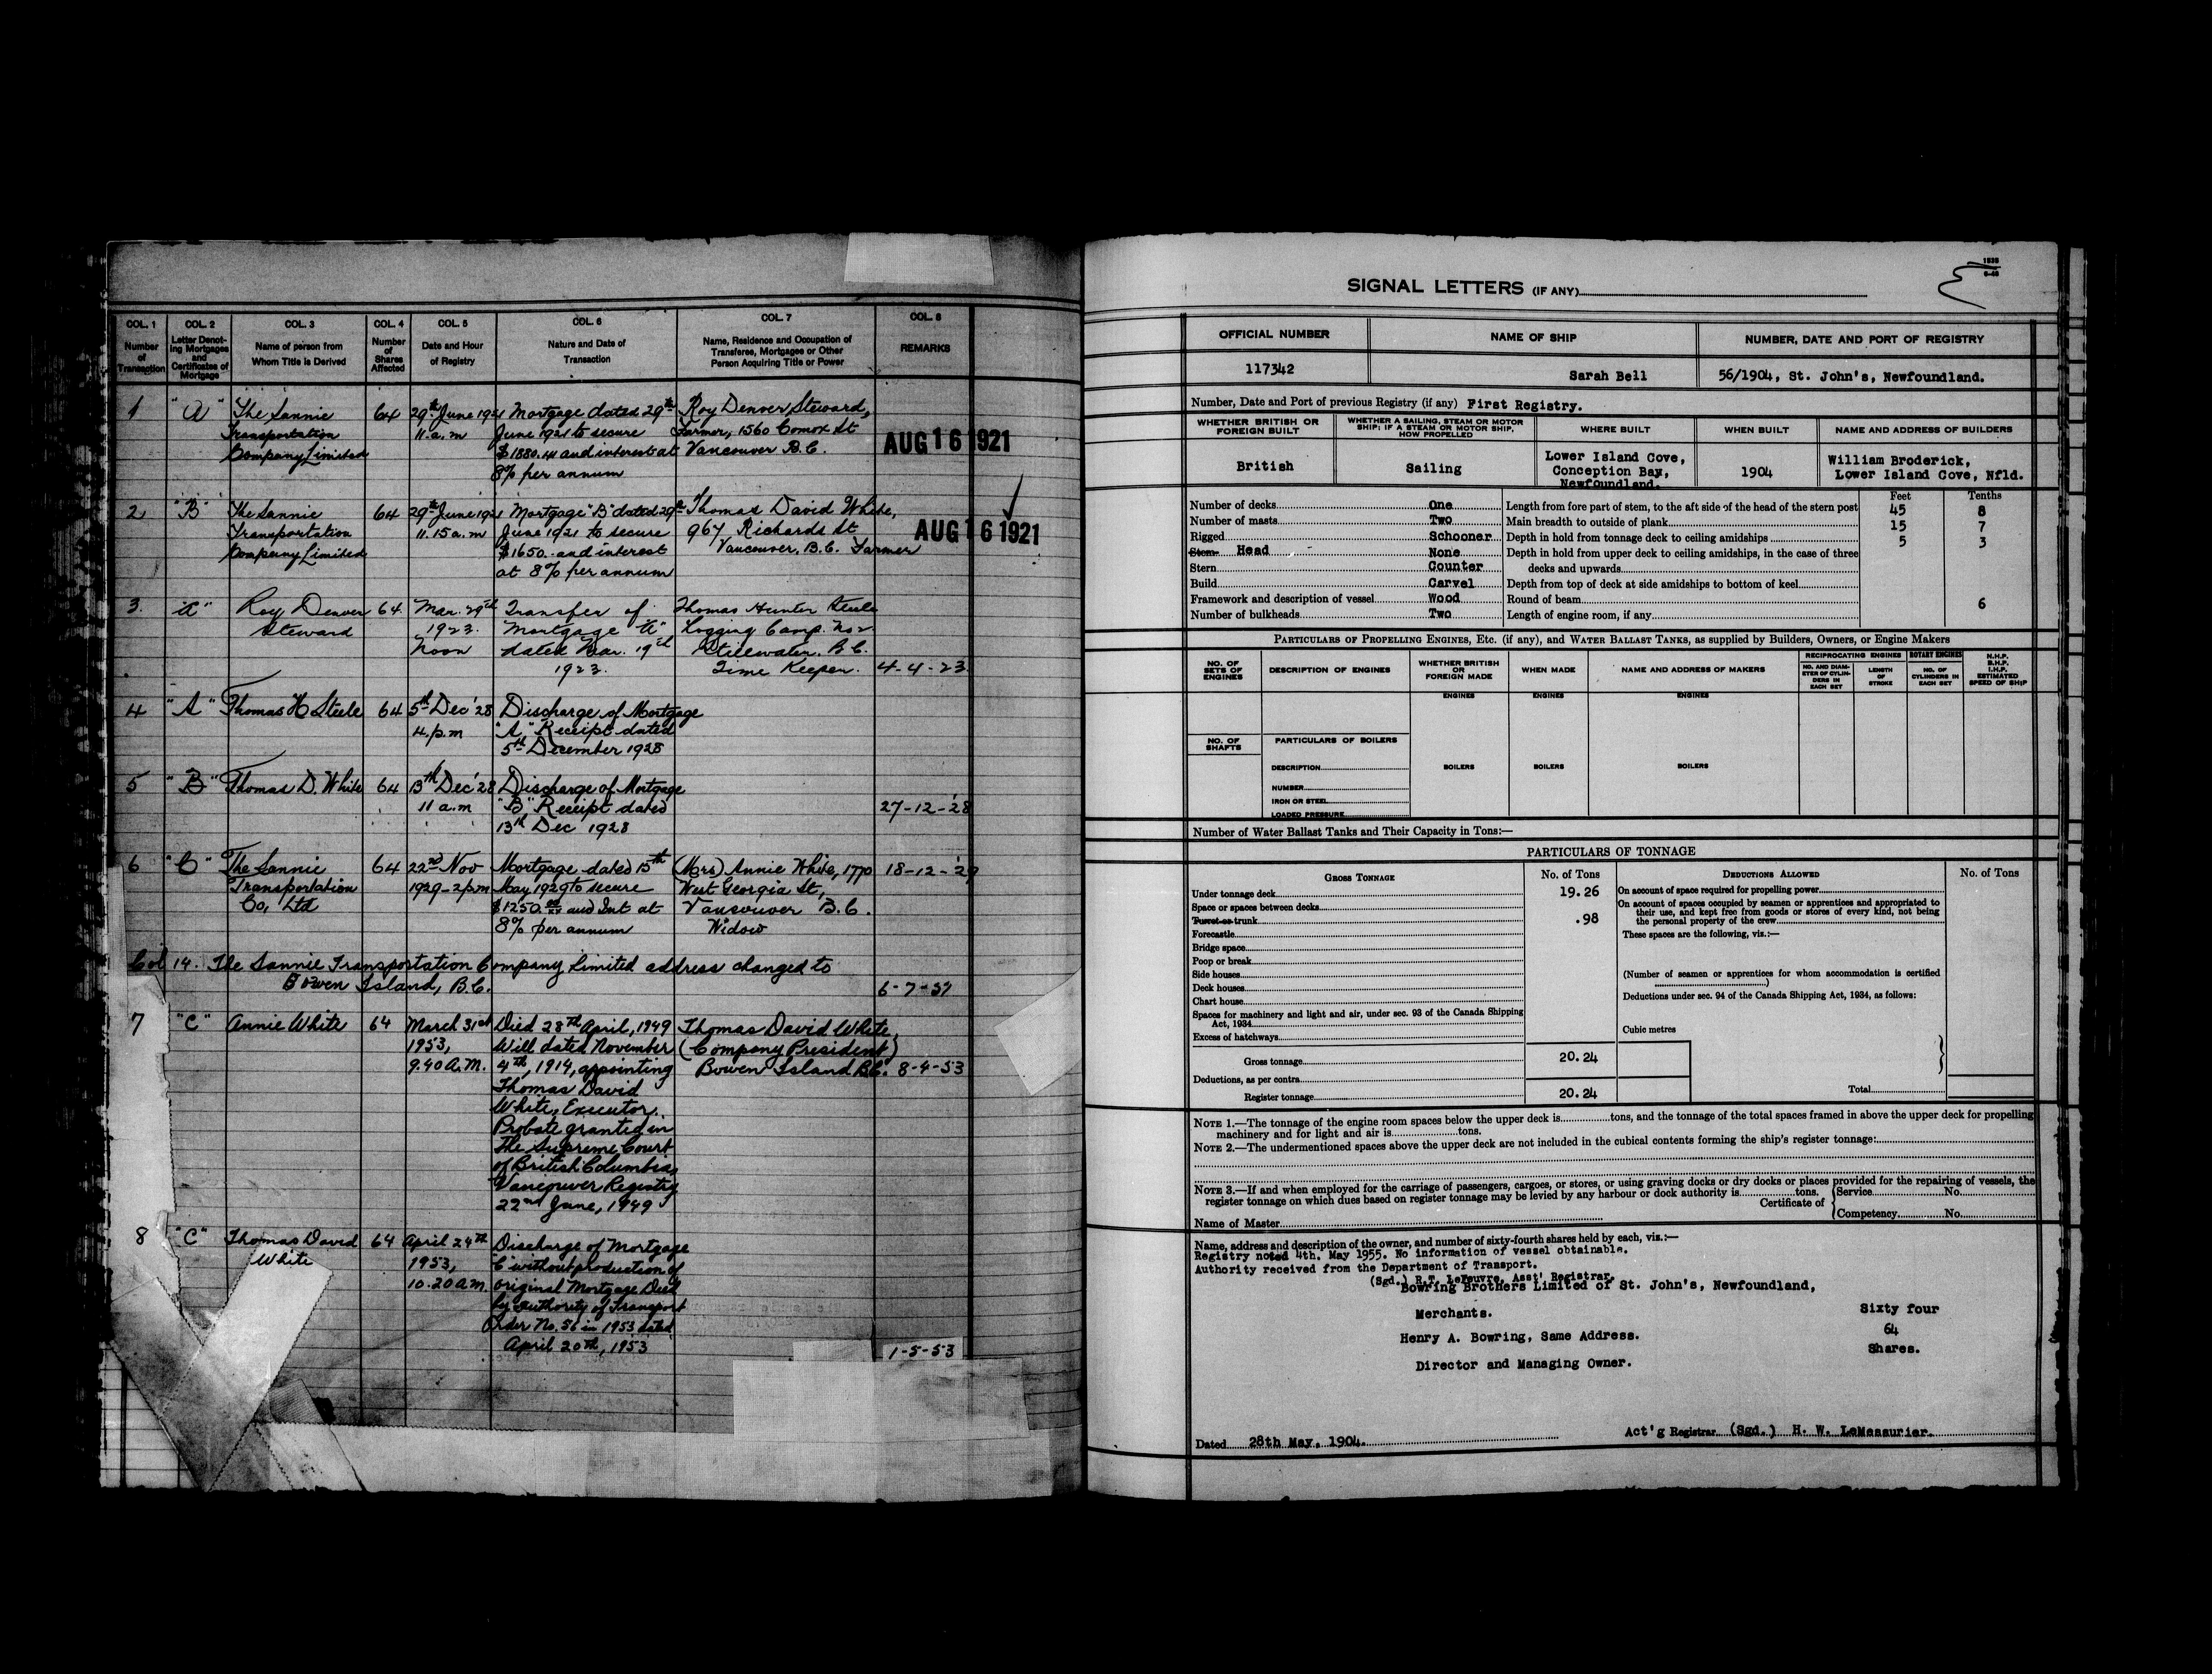 COL. 1 COL. 2 COL. 3 COL. 4 COL. 5 COL. 6 COL. 7 COL. 8
Number of Transaction
Letter Denoting Mortgages and Certificates of Mortgage
Name of person from Whom Title is Derived
Number of Shares Affected
Date and Hour of Registry
Nature and Date of Transaction
Name, Residence and Occupation of Transferee, Mortgagee or Other Person Acquiring Title or Power
REMARKS
1 "A" The Sannie 64 29th June 1921 Mortgage dated 29th Roy Denver Steward,
Transportation 11. a.m June 1921 to secure Farmer, 1560 Comox St
Company Limited $1880.41 and interest at Vancouver B.C. AUG 16 1921
8% per annum
2 "B" The Sannie 64 29th June 1921 Mortgage "B" dated 29th Thomas David White,
Transportation 11.15 a.m June 1921 to secure 967 Richards St AUG 16 1921
Company Limited $1650. and interest Vancouver, B.C. Farmer
at 8% per annum
3. "A" Roy Denver 64 Mar. 29th Transfer of Thomas Hunter Steele
Steward 1923. Mortgage "A" Logging Camp. No 2.
Noon dated Mar. 19th Stillwater, B.C.
1923. Time Keeper. 4-4-23
4 "A" Thomas H Steele 64 5th Dec '28 Discharge of Mortgage
4.p.m "A" Receipt dated
5th December 1928
5 "B" Thomas D. White 64 13th Dec '28 Discharge of Mortgage
11 a.m "B" Receipt dated 27-12-'28
13th Dec 1928
6 "C" The Sannie 64 22nd Nov Mortgage dated 15th (Mrs) Annie White, 1770 18-12-'29
Transportation 1929 - 2pm May 1929 to secure West Georgia St,
Co, Ltd $1250.00 and Int at Vancouver B.C.
8% per annum Widow
Col 14. The Sannie Transportation Company Limited address changed to
Bowen Island, B.C. 6-7-37
7 "C" Annie White 64 March 31st Died 28th April, 1949 Thomas David White,
1953, Will dated November (Company President)
9.40 A.M. 4th, 1914, appointing Bowen Island B.C. 8-4-53
Thomas David
White, Executor.
Probate granted in
The Supreme Court
of British Columbia,
Vancouver Registry
22nd June, 1949
8 "C" Thomas David 64 April 24th Discharge of Mortgage
White 1953, "C" without production of
10.20 a.m. original Mortgage Deed
by authority of Transport
Order No. 56 in 1953 dated
April 20th, 1953 1-5-53
SIGNAL LETTERS (IF ANY)
OFFICIAL NUMBER NAME OF SHIP NUMBER, DATE AND PORT OF REGISTRY
117342 Sarah Bell 56/1904, St. John's, Newfoundland.
Number, Date and Port of previous Registry (if any) First Registry.
WHETHER BRITISH OR FOREIGN BUILT
WHETHER A SAILING, STEAM OR MOTOR SHIP; IF A STEAM OR MOTOR SHIP, HOW PROPELLED
WHERE BUILT WHEN BUILT NAME AND ADDRESS OF BUILDERS
British Sailing Lower Island Cove, Conception Bay, Newfoundland. 1904 William Broderick, Lower Island Cove, Nfld.
Feet Tenths
Number of decks One Length from fore part of stem, to the aft side of the head of the stern post 45 8
Number of masts Two Main breadth to outside of plank 15 7
Rigged Schooner Depth in hold from tonnage deck to ceiling amidships 5 3
Stem Head None Depth in hold from upper deck to ceiling amidships, in the case of three
Stern Counter decks and upwards
Build Carvel Depth from top of deck at side amidships to bottom of keel
Framework and description of vessel Wood Round of beam 6
Number of bulkheads Two Length of engine room, if any
PARTICULARS OF PROPELLING ENGINES, ETC. (if any), and WATER BALLAST TANKS, as supplied by Builders, Owners, or Engine Makers
NO. OF SETS OF ENGINES
DESCRIPTION OF ENGINES
WHETHER BRITISH OR FOREIGN MADE
WHEN MADE
NAME AND ADDRESS OF MAKERS
RECIPROCATING ENGINES ROTARY ENGINES
NO. AND DIAMETER OF CYLINDERS IN EACH SET
LENGTH OF STROKE
NO. OF CYLINDERS IN EACH SET
N.H.P. B.H.P. I.H.P. ESTIMATED SPEED OF SHIP
ENGINES ENGINES ENGINES
NO. OF SHAFTS PARTICULARS OF BOILERS
DESCRIPTION BOILERS BOILERS BOILERS
NUMBER
IRON OR STEEL
LOADED PRESSURE
Number of Water Ballast Tanks and Their Capacity in Tons:—
PARTICULARS OF TONNAGE
GROSS TONNAGE No. of Tons DEDUCTIONS ALLOWED No. of Tons
Under tonnage deck 19.26
Space or spaces between decks
Turret or trunk .98
Forecastle
Bridge space
Poop or break
Side houses
Deck houses
Chart house
Spaces for machinery and light and air, under sec. 93 of the Canada Shipping
Act, 1934
Excess of hatchways
Gross tonnage 20.24
Deductions, as per contra
Register tonnage 20.24
On account of space required for propelling power
On account of spaces occupied by seamen or apprentices and appropriated to
their use, and kept free from goods or stores of every kind, not being
the personal property of the crew
These spaces are the following, viz.:—
(Number of seamen or apprentices for whom accommodation is certified
)
Deductions under sec. 94 of the Canada Shipping Act, 1934, as follows:
Cubic metres
Total
NOTE 1.—The tonnage of the engine room spaces below the upper deck is tons, and the tonnage of the total spaces framed in above the upper deck for propelling
machinery and for light and air is tons.
NOTE 2.—The undermentioned spaces above the upper deck are not included in the cubical contents forming the ship's register tonnage:
NOTE 3.—If and when employed for the carriage of passengers, cargoes, or stores, or using graving docks or dry docks or places provided for the repairing of vessels, the
register tonnage on which dues based on register tonnage may be levied by any harbour or dock authority is tons.
Certificate of Service No.
Competency No.
Name of Master
Name, address and description of the owner, and number of sixty-fourth shares held by each, viz.:—
Registry noted 4th. May 1955. No information of vessel obtainable.
Authority received from the Department of Transport.
(Sgd.) R.T. LeFeuvre, Asst' Registrar.
Bowring Brothers Limited of St. John's, Newfoundland,
Merchants. Sixty four
Henry A. Bowring, Same Address. 64
Director and Managing Owner. Shares.
Act'g Registrar (Sgd.) H. W. LeMessurier.
Dated 28th May, 1904.